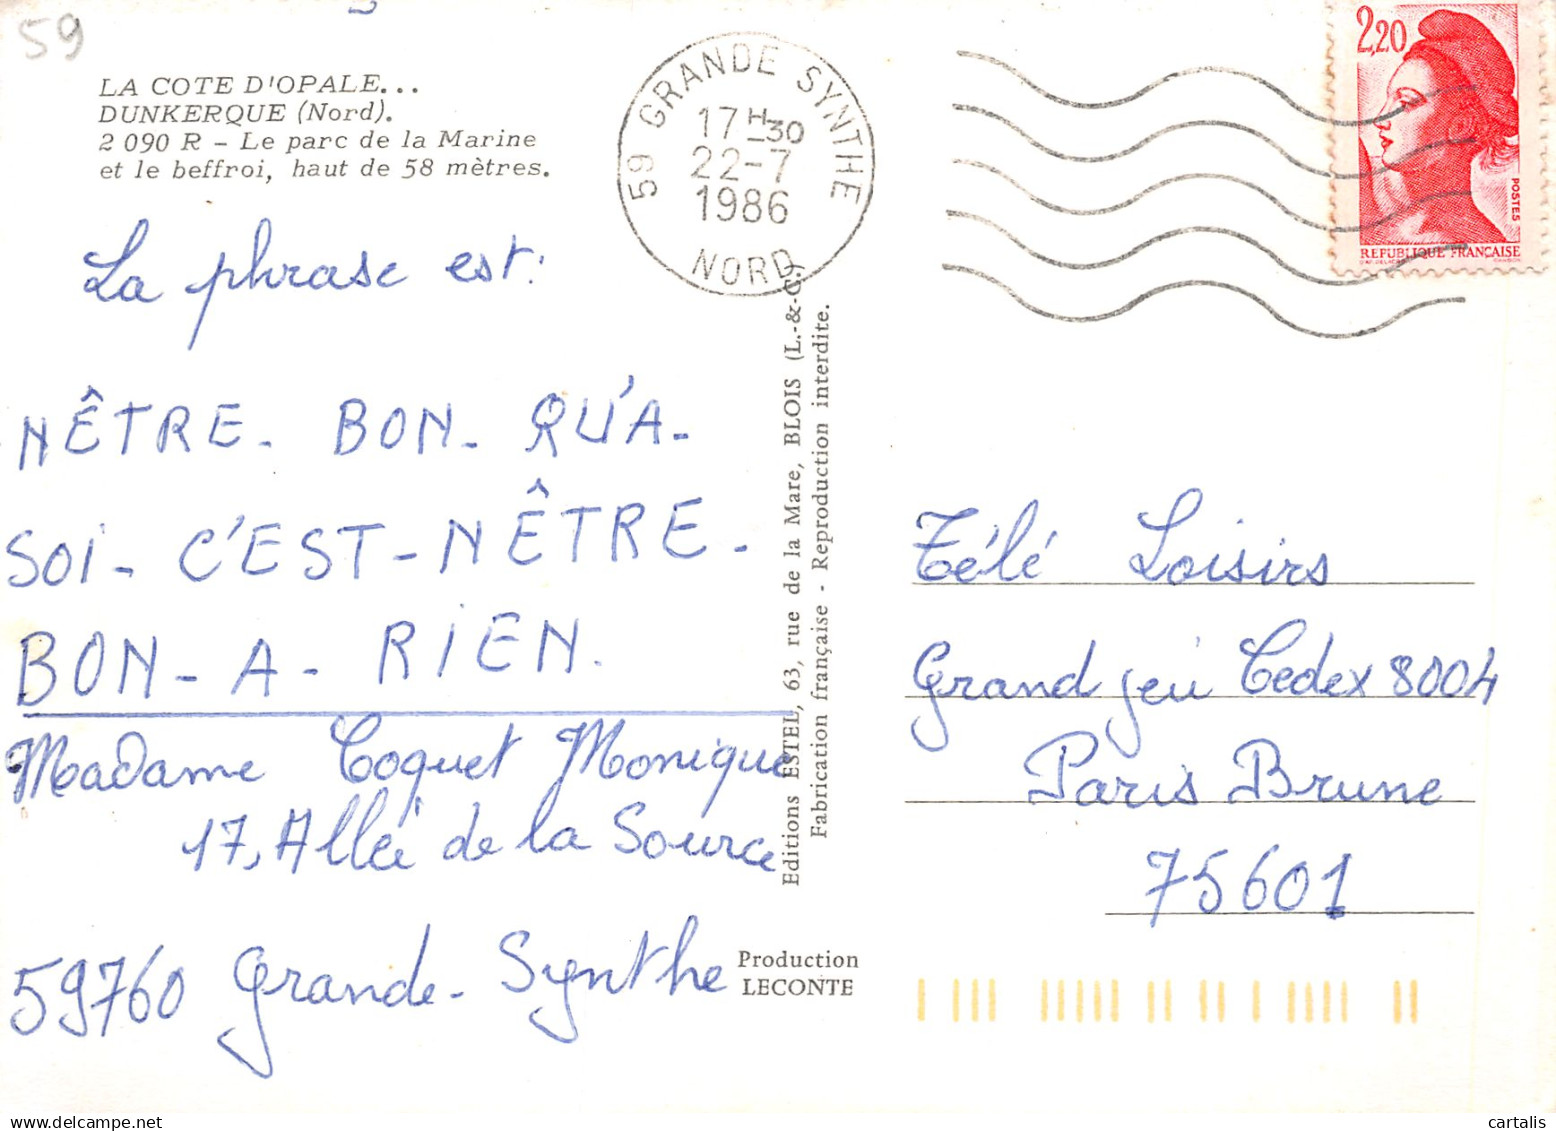 59
LA COTE D'OPALE...
DUNKERQUE (Nord).
2 090 R - Le parc de la Marine
et le beffroi, haut de 58 mètres.
59 GRANDE SYNTHE
17 H 30
22-7
1986
NORD
2,20
POSTES
REPUBLIQUE FRANÇAISE
La phrase est:
NÊTRE. BON. QU'A-
SOI. C'EST-NÊTRE.
BON-A-RIEN.
Madame Coquet Monique
17, Allée de la Source
59760 Grande-Synthe
Editions ESTEL, 63, rue de la Mare, BLOIS (L.-&-C.)
Fabrication française - Reproduction interdite.
Production
LECONTE
Télé Loisirs
Grand jeu Cedex 8004
Paris Brune
75601
www.cartalis.com